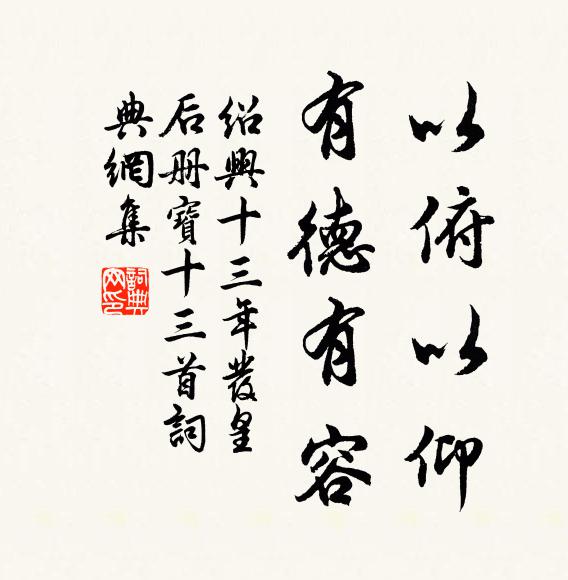 以俯以仰
有德有容
绍興十三年發皇
后册寶十三首詞
典網集
詞典
网印